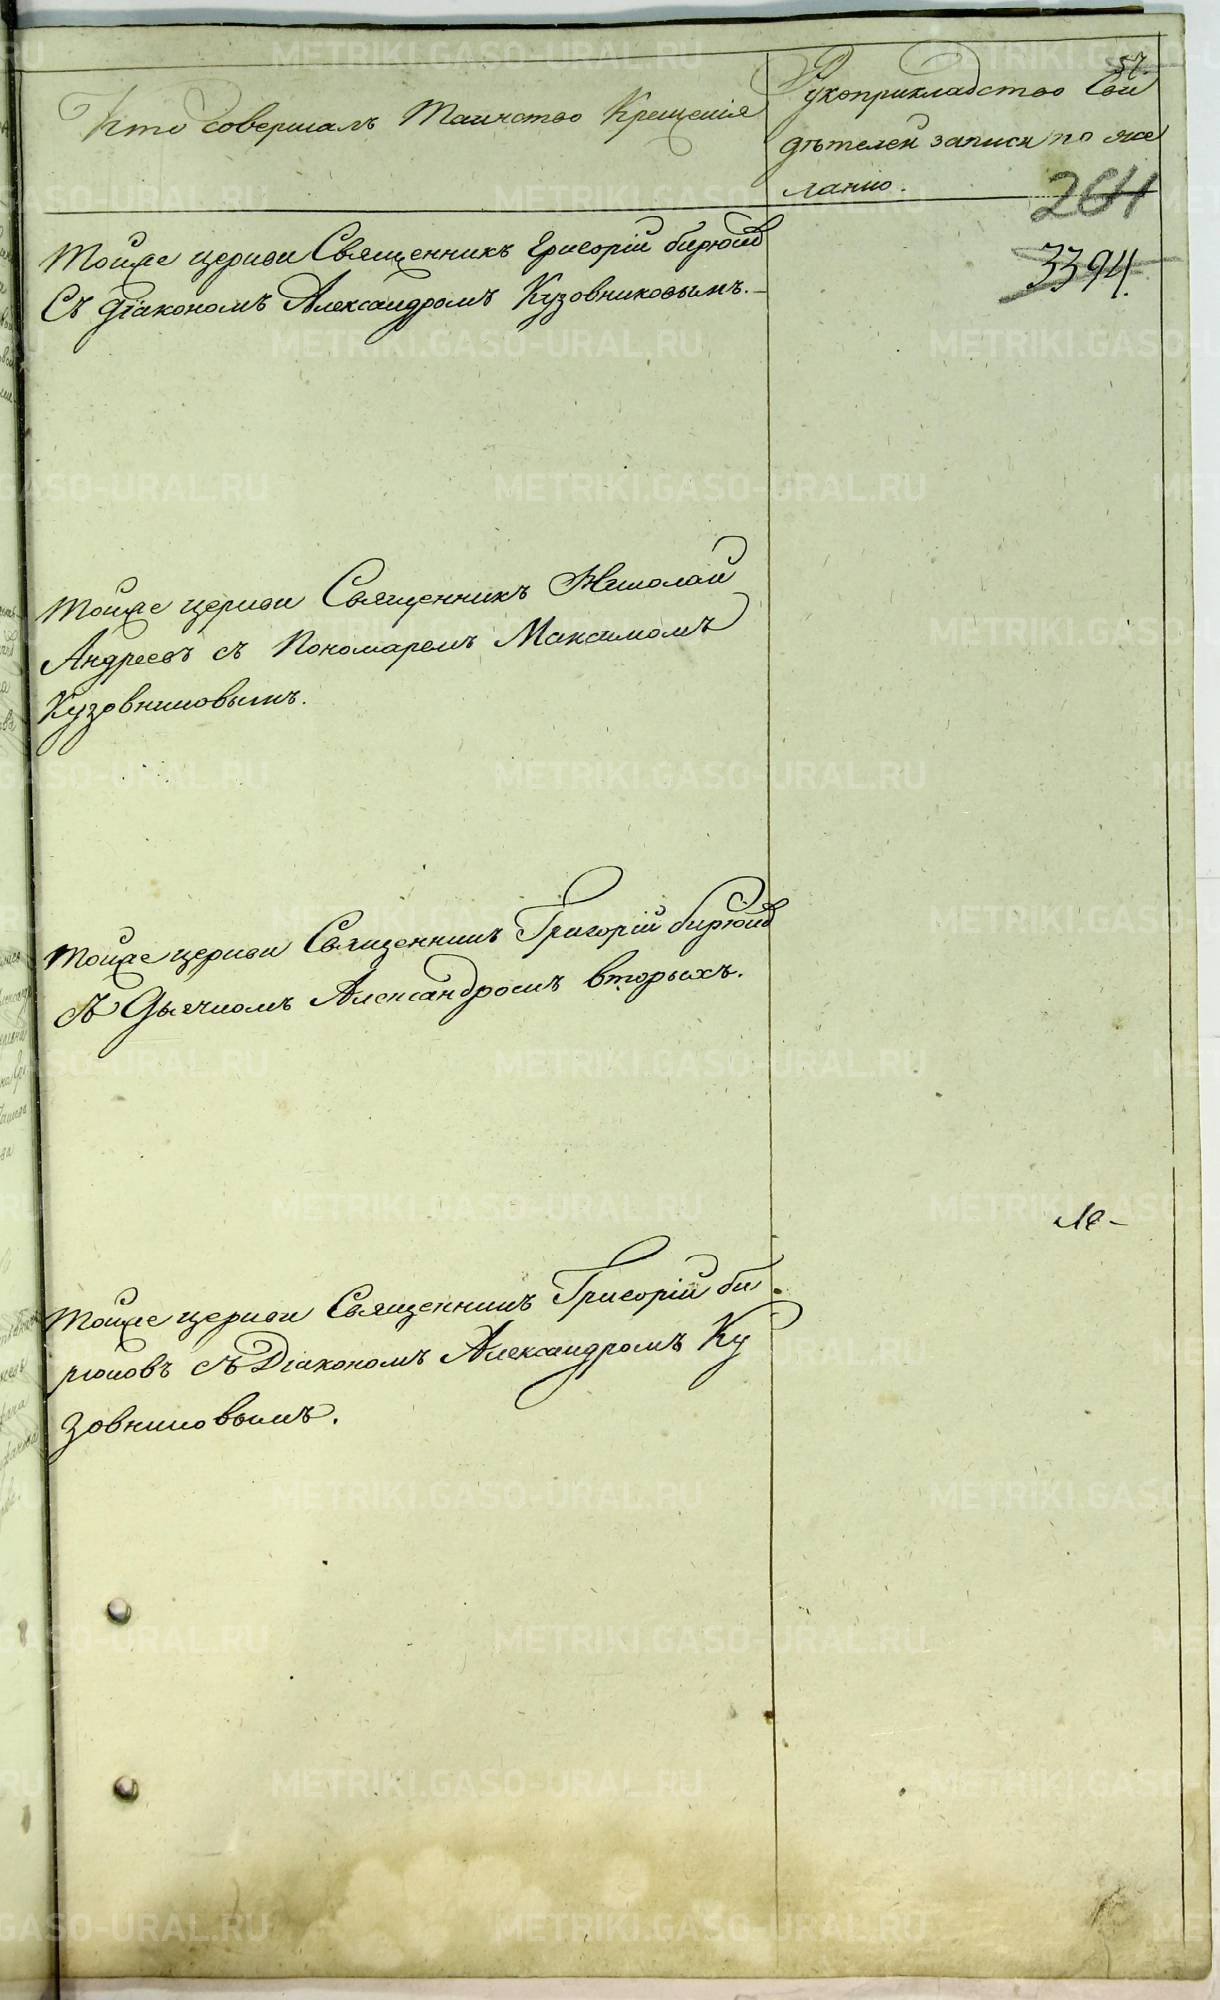 Кто совершалъ Таинство Крещенія
Рукоприкладство Сви
дѣтелей записи по же
ланию.
57.
264
3394.
тойже церкви Священникъ Григорій бирюковъ
Съ діакономъ Александромъ Кузовниковымъ.
тойже церкви Священникъ Николай
Андреевъ съ Пономаремъ Максимомъ
Кузовниковымъ.
тойже церкви Священникъ Григорій бирюковъ
съ Дьячкомъ Александромъ Вторыхъ.
тойже церкви Священникъ Григорій би
рюковъ съ Діакономъ Александромъ Ку
зовниковымъ.
METRIKI.GASO-URAL.RU